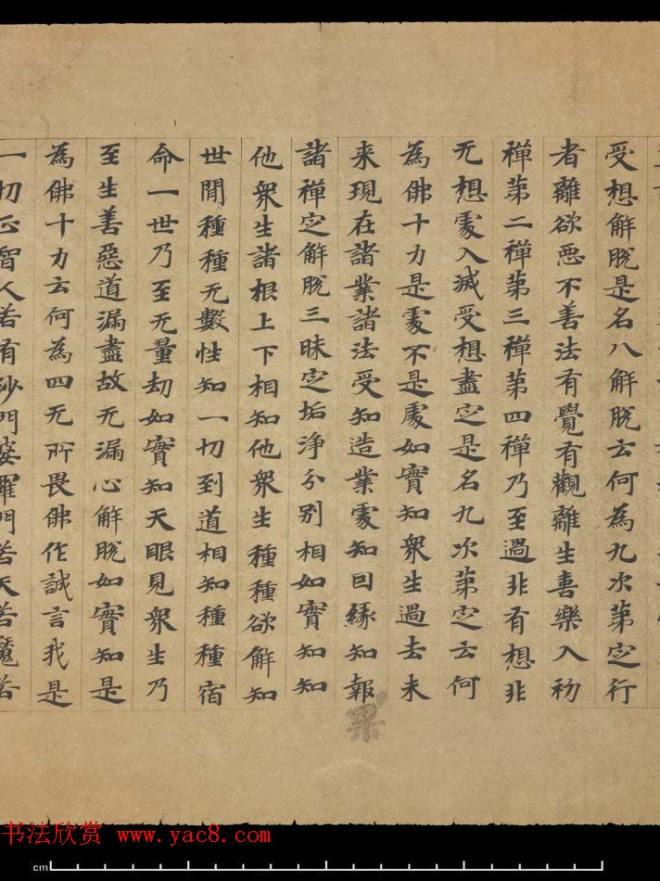 受想解脫是名八解脫云何為九次第定行
者離欲惡不善法有覺有觀離生喜樂入初
禪第二禪第三禪第四禪乃至過非有想非
无想處入滅受想盡定是名九次第定云何
為佛十力是處不是處如實知眾生過去未
来現在諸業諸法受知造業處知因緣知報
諸禪定解脫三昧定垢淨分別相如實知知
他眾生諸根上下相知他眾生種種欲解知
世間種種无數性知一切到道相知種種宿
命一世乃至无量劫如實知天眼見眾生乃
至生善惡道漏盡故无漏心解脫如實知是
為佛十力云何為四无所畏佛作誠言我是
一切正智人若有沙門婆羅門若天若魔若
果
书法欣赏 www.yac8.com
cm